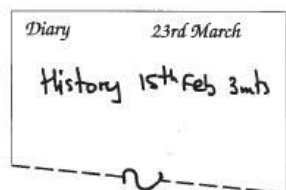 Diary 23rd March
History 15th Feb 3mts